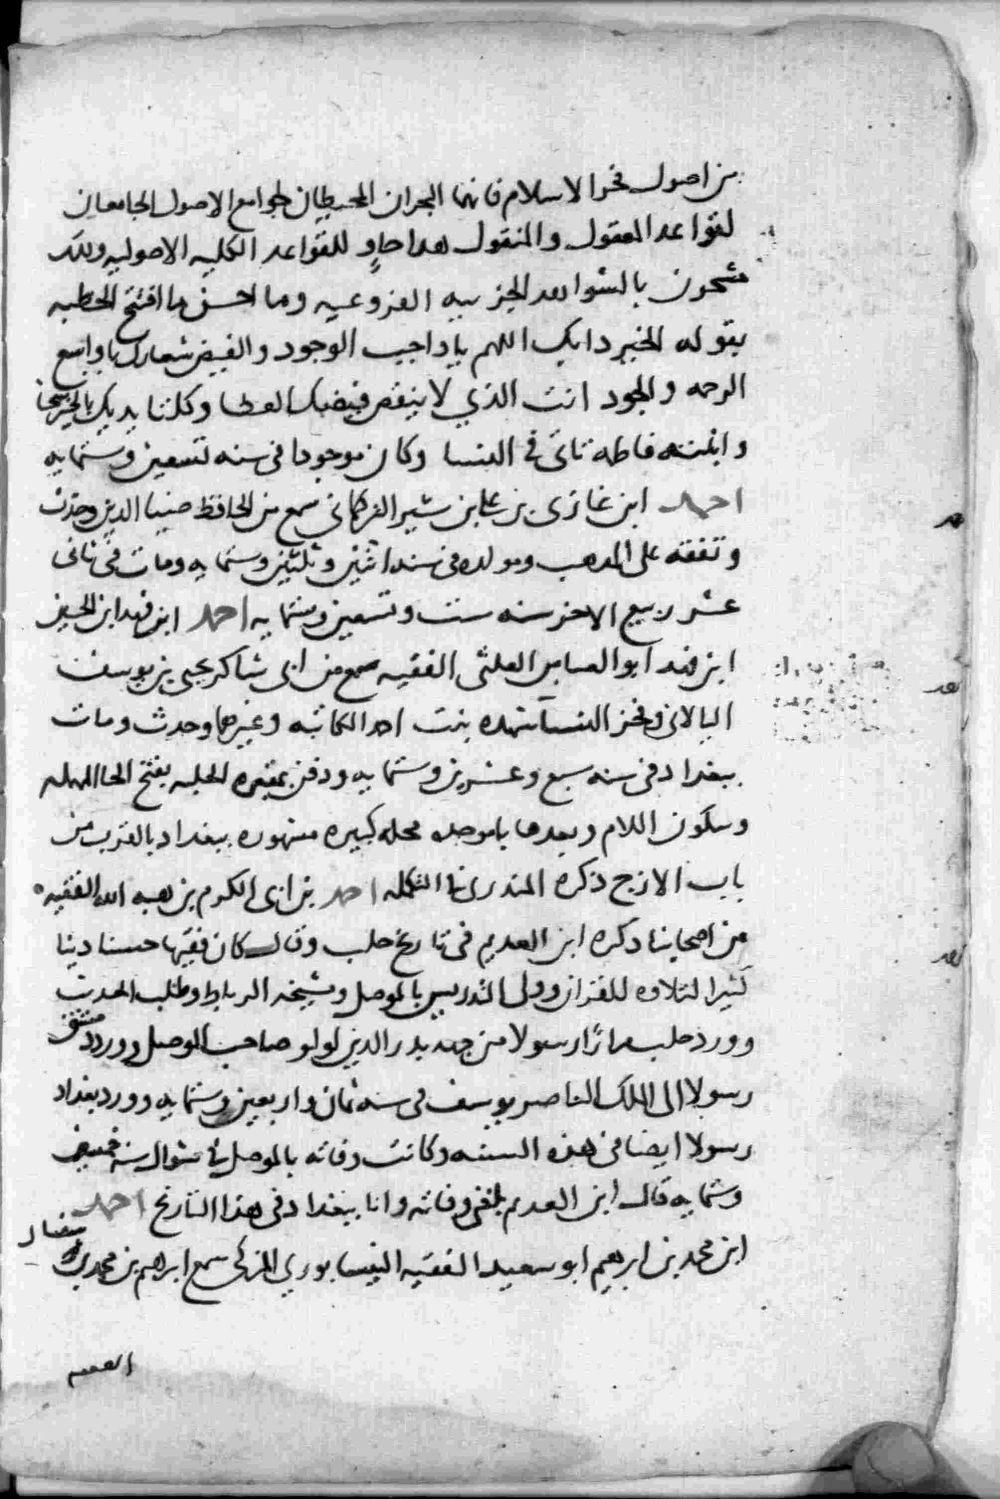 من اصول فخر الاسلام فانهما البحران المحيطان لجوامع الاصول الجامعان
لقواعد المعقول والمنقول هذا حاوٍ للقواعد الكليه الاصوليه وذلك
مشحون بالشواهد الجزييه الفروعيه وما احسن ما افتتح الخطبه
بقوله الخير دابك اللهم ياواجب الوجود والفيض شعارك ياواسع
الرحمه والجود انت الذي لا ينقص فيضك العطا وكلتا يديك بالخير سحا
وابنته فاطمه تاتى في النسا وكان موجودا فى سنه تسعين وستمايه
احمد ابن غازى بن على بن شير التركمانى سمع من الحافظ ضيا الدين وحدث
وتفقه على المذهب ومولده فى سنه اثنين وثلثين وستمايه ومات فى ثانى
عشر ربيع الاخر سنه ست وتسعين وستمايه احمد ابن فهد ابن الحسين
ابن فهد ابو العباس العلثى الفقيه سمع من ابى شاكر يحيى بن يوسف
البالانى وفخر النسا شهده بنت احمد الكاتبه وغيرهما وحدث ومات
ببغداد فى سنه سبع وعشرين وستمايه ودفن بمقبره الحلبه بفتح الحا المهمله
وسكون اللام وبعدها باموحده محله كبيره مشهوره ببغداد بالقرب من
باب الازج ذكره المنذرى فى التكمله احمد بن ابى الكرم بن هبه الله الفقيه
من اصحابنا ذكره ابن العديم فى تاريخ حلب وقال كان فقيها حسنا دينا
كثير التلاوه للقران وولى التدريس بالموصل ومشيخه الرباط وطلب الحديث
وورد حلب مرارًا رسولا من جهه بدر الدين لولو صاحب الموصل وورد دمشق
رسولا الى الملك الناصر يوسف فى سنه ثمان واربعين وستمايه وورد بغداد
رسولا ايضا فى هذه السنه وكانت وفاته بالموصل فى شوال سنه خمسين
وستمايه قال ابن العديم بلغنى وفاته وانا ببغداد فى هذا التاريخ احمد
ابن محمد بن ابرهيم ابو سعيد الفقيه النيسابوري المزكى سمع ابرهيم بن محمد بن سفيان
الفقيه